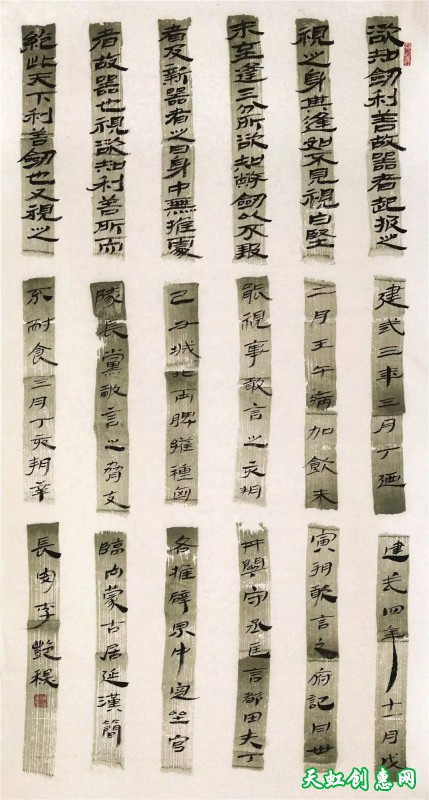 欲知劒利善故器者起拔之
視之身其逢如不見視白堅
未至逢三分所欲知幣劒以不報
者及新器者之日身中無推處
者故器也視欲知利善所而
絶此天下利善劒也又視之
建武三年三月丁
二月壬午病加飲未
能視事敢言之亥朔
城北両脾雍種匈
隊長黨敢言之脅支
不耐食三月丁亥朔辛
建武四年十一月戊
寅朔敢言之府記曰
守丞匡言都田夫丁
各推辟界中定坐官
臨内蒙古居延漢簡
長安李艷
天虹创惠网